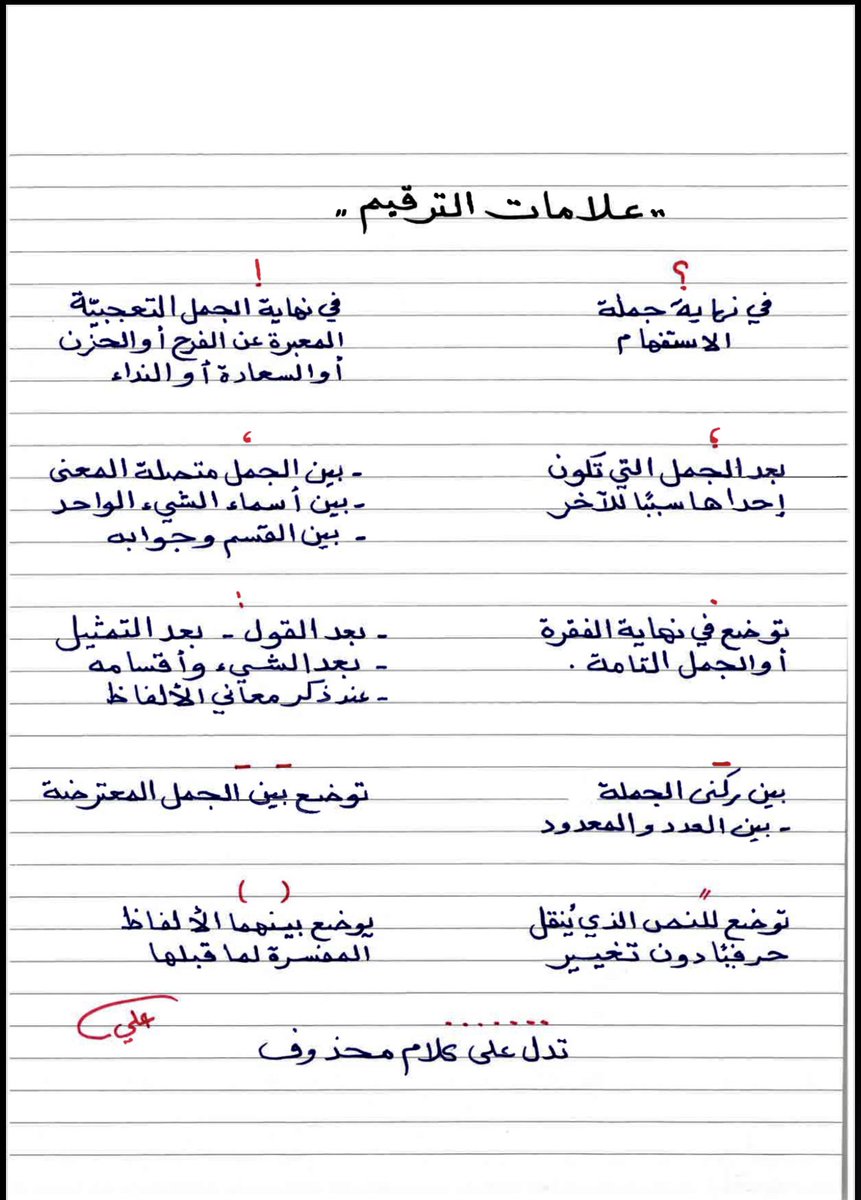 "علامات الترقيم"
؟
في نهاية جملة
الاستفهام
!
في نهاية الجمل التعجبيّة
المعبرة عن الفرح أو الحزن
أو السعادة أو النداء
؛
بعد الجمل التي تكون
إحداها سببًا للآخر
،
- بين الجمل متصلة المعنى
- بين أسماء الشيء الواحد
- بين القسم وجوابه
.
توضع في نهاية الفقرة
أو الجمل التامة .
:
- بعد القول - بعد التمثيل
- بعد الشيء وأقسامه
- عند ذكر معاني الألفاظ
-
بين ركنى الجملة
- بين العدد والمعدود
- -
توضع بين الجمل المعترضة
"
توضع للنص الذي يُنقل
حرفيًا دون تغيير
( )
يوضع بينهما الألفاظ
المفسرة لما قبلها
.......
تدل على كلام محذوف
علي